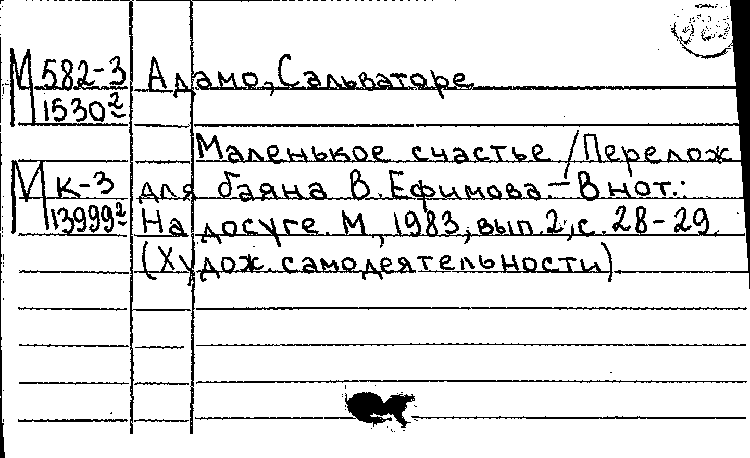 М 582-3 Адамо, Сальваторе
15302
Маленькое счастье / Перелож
М К-3 для баяна В. Ефимова. – В нот.:
139992 На досуге. М, 1983, вып. 2, с. 28-29.
(Худож. самодеятельности).